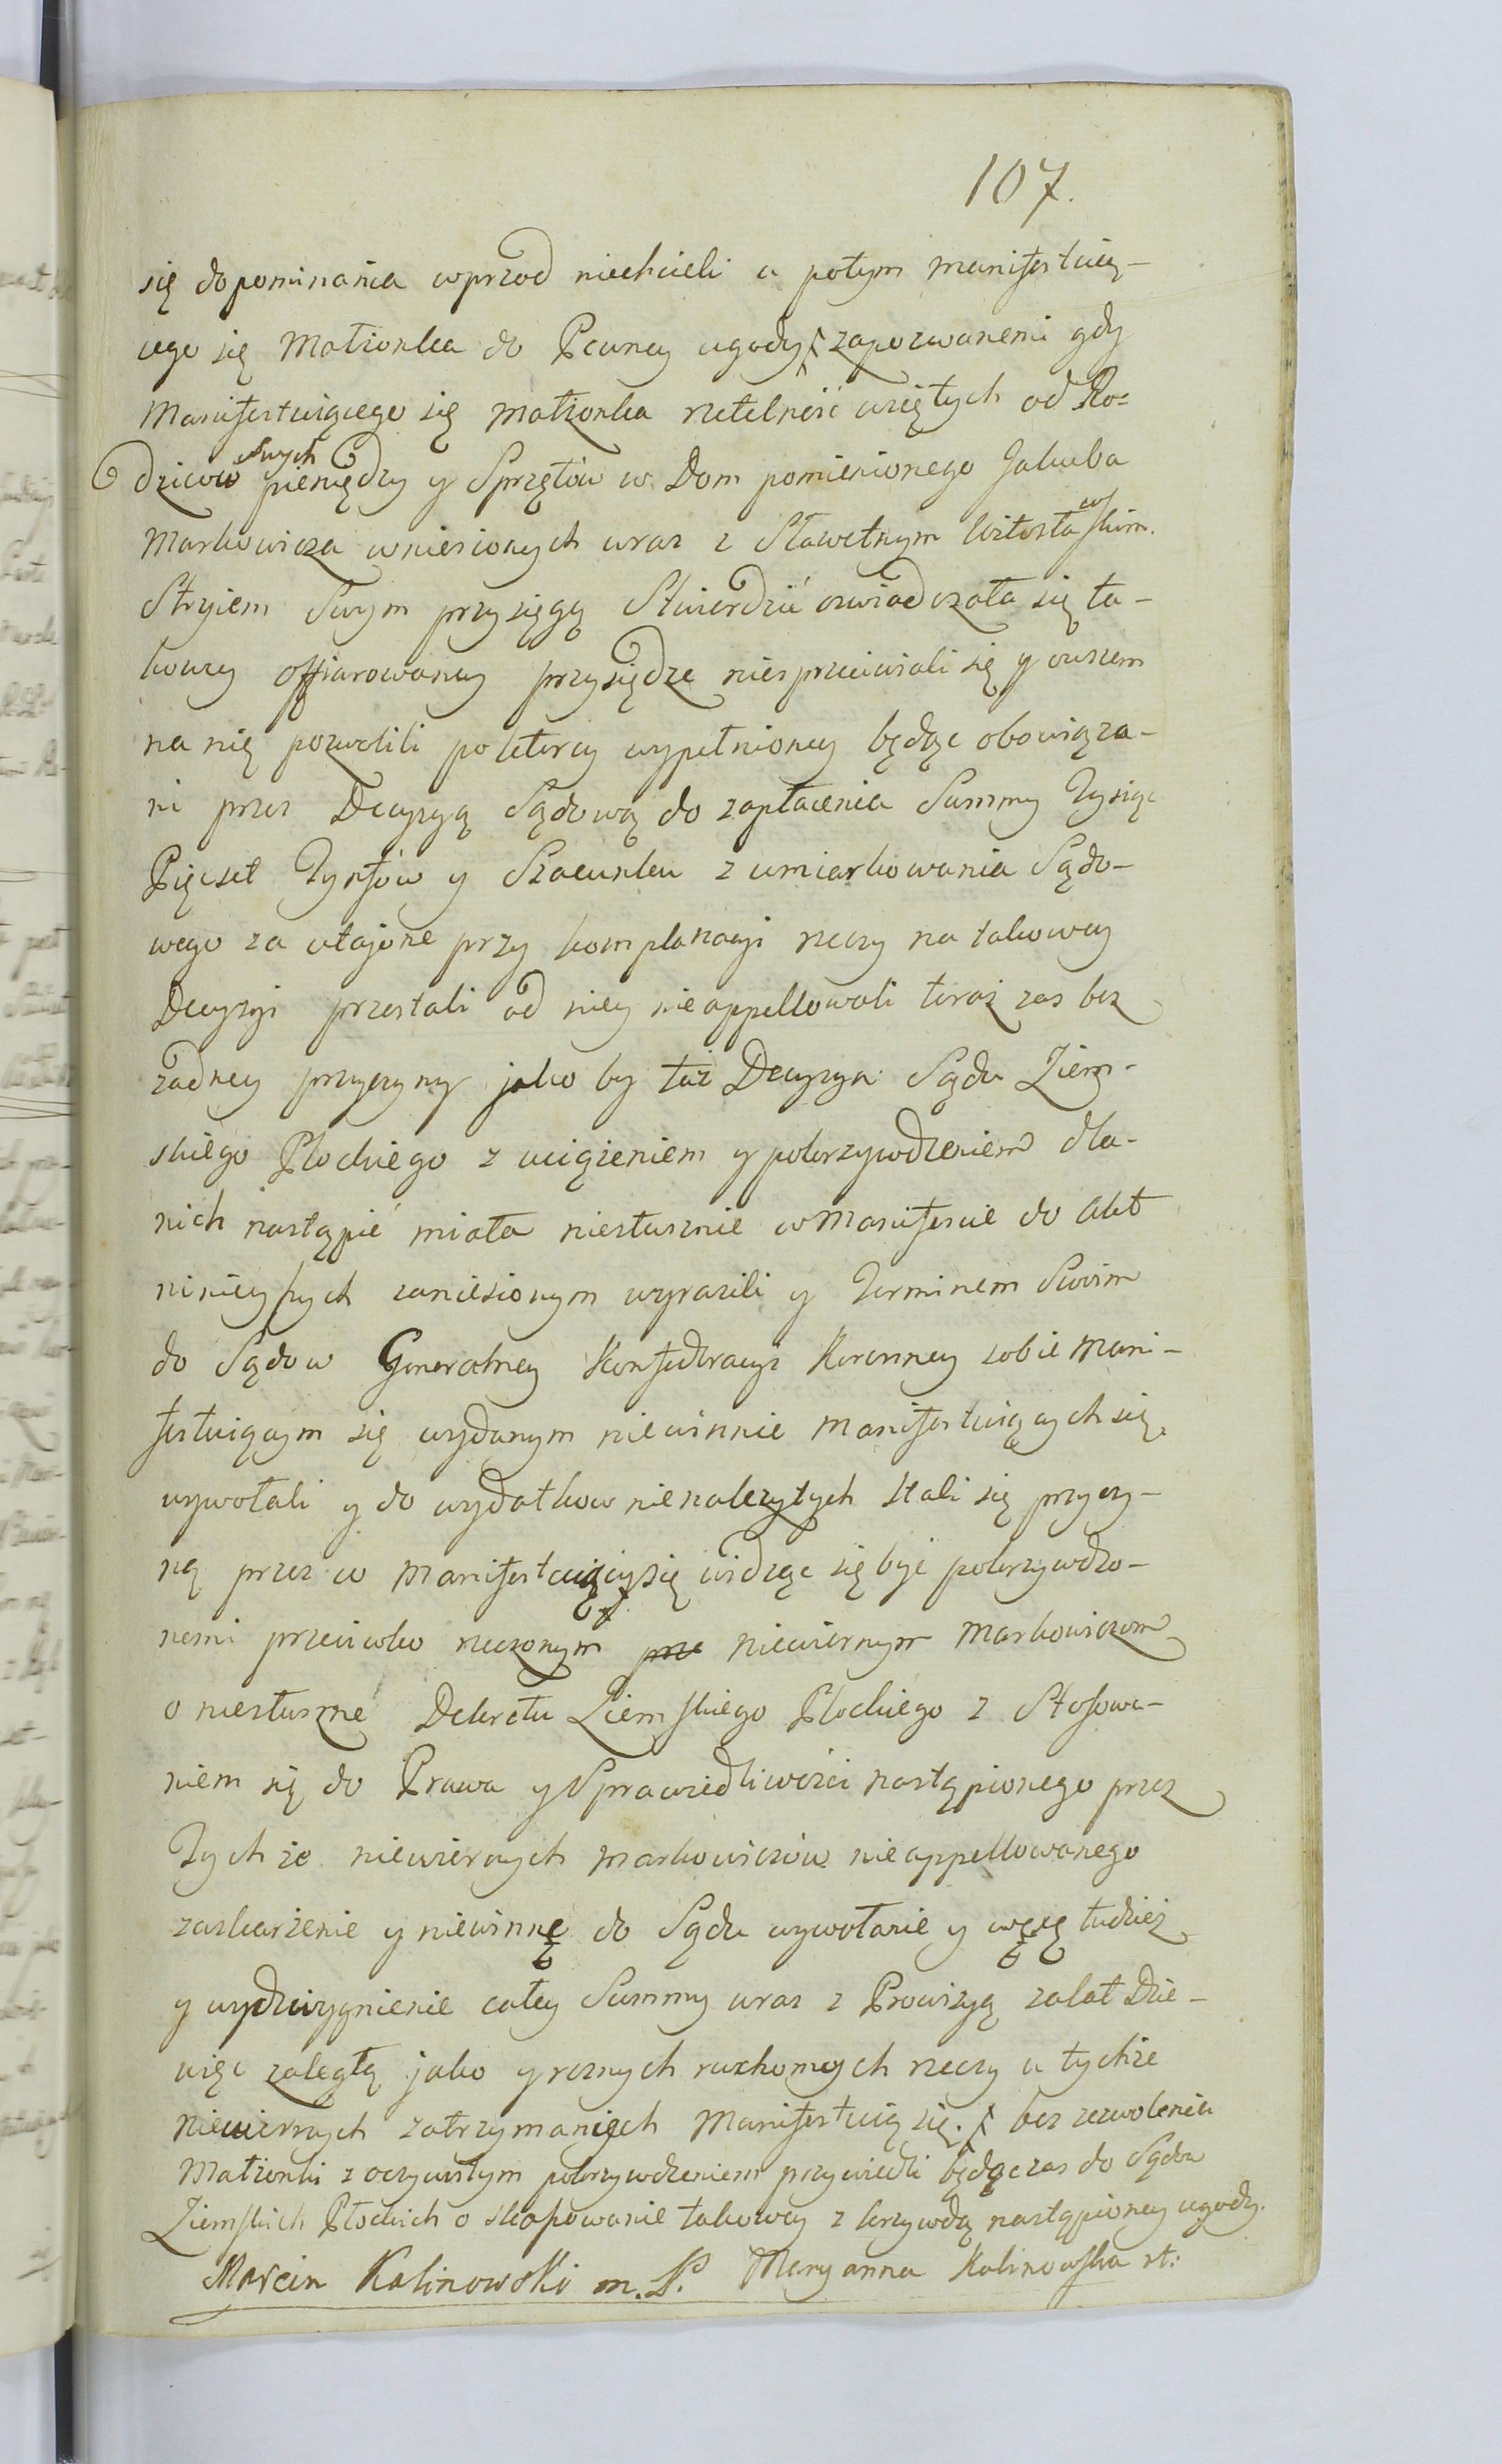 107.
się dopominania wprzod niechcieli a potym manifestuią-
cego się Małżonka do Pewney ugody ⁁ zapozwanemi gdy
Manifestuiącego się małżonka rzetelność wziętych od Ro=
dzicow swych pieniędzy y Sprzętów w Dom pomienionego Jakuba
Markowicza wniesionych wraz z Sławetnym Witosławskim
Stryiem Swym przysięgą Stwierdzić oswiadczała się ta-
kowey offiarowaney przysiędze niesprzeciwiali się y owszem
na nię pozwolili po ktorey wypełnioney będąc obowiąza-
ni przez Decyzyą Sądową do zapłacenia Summy Tysiąc
Pięcset Tynfów y Szacunku z umiarkowania Sądo-
wego za utajone przy komplanacyi rzeczy na takowey
Decyzyi przestali od niey nieappellowali teraz zas bez
żadney przyczyny jako by taż Decyzya Sądu Ziem-
skiego Płockiego z uciążeniem y pokrzywdzeniem dla-
nich nastąpić miała niesłusznie w Manifescie do Akt
ninieyszych zaniesionym wyrazili y Terminem Swoim
do Sądow Generalney Konfederacyi Koronney sobie Mani-
festuiącym się wydanym niewinnie Manifestuiących się
wywołali y do wydatkow nienależytych stali się przyczy-
ną przez co Manifestuiący się widząc się być pokrzywdzo-
nemi przeciwko rzeczonym prze niewiernym Markowiczom
o niesłuszne Dekretu Ziemskiego Płockiego z Stosowa-
niem się do Prawa y Sprawiedliwości nastąpionego przez
Tychże niewiernych Markowiczów nieappellowanego
zaskarżenie y niewinne do Sądu wywołanie y tudzież
y wydzwignienie całey Summy wraz z Prowizyą za lat Dzie-
więc zaległą jako y roznych ruchomych rzeczy u tychże
niewiernych zatrzymanych Manifestuią się. ⁁ bez zezwolenia
Małżonki z oczywistym pokrzywdzeniem przywiedli będąc zas do Sądu
Ziemskich Płockich o skassowanie takowey z krzywdą nastąpioney ugody.
Marcin Kalinowski m.p. Maryanna Kalinowska